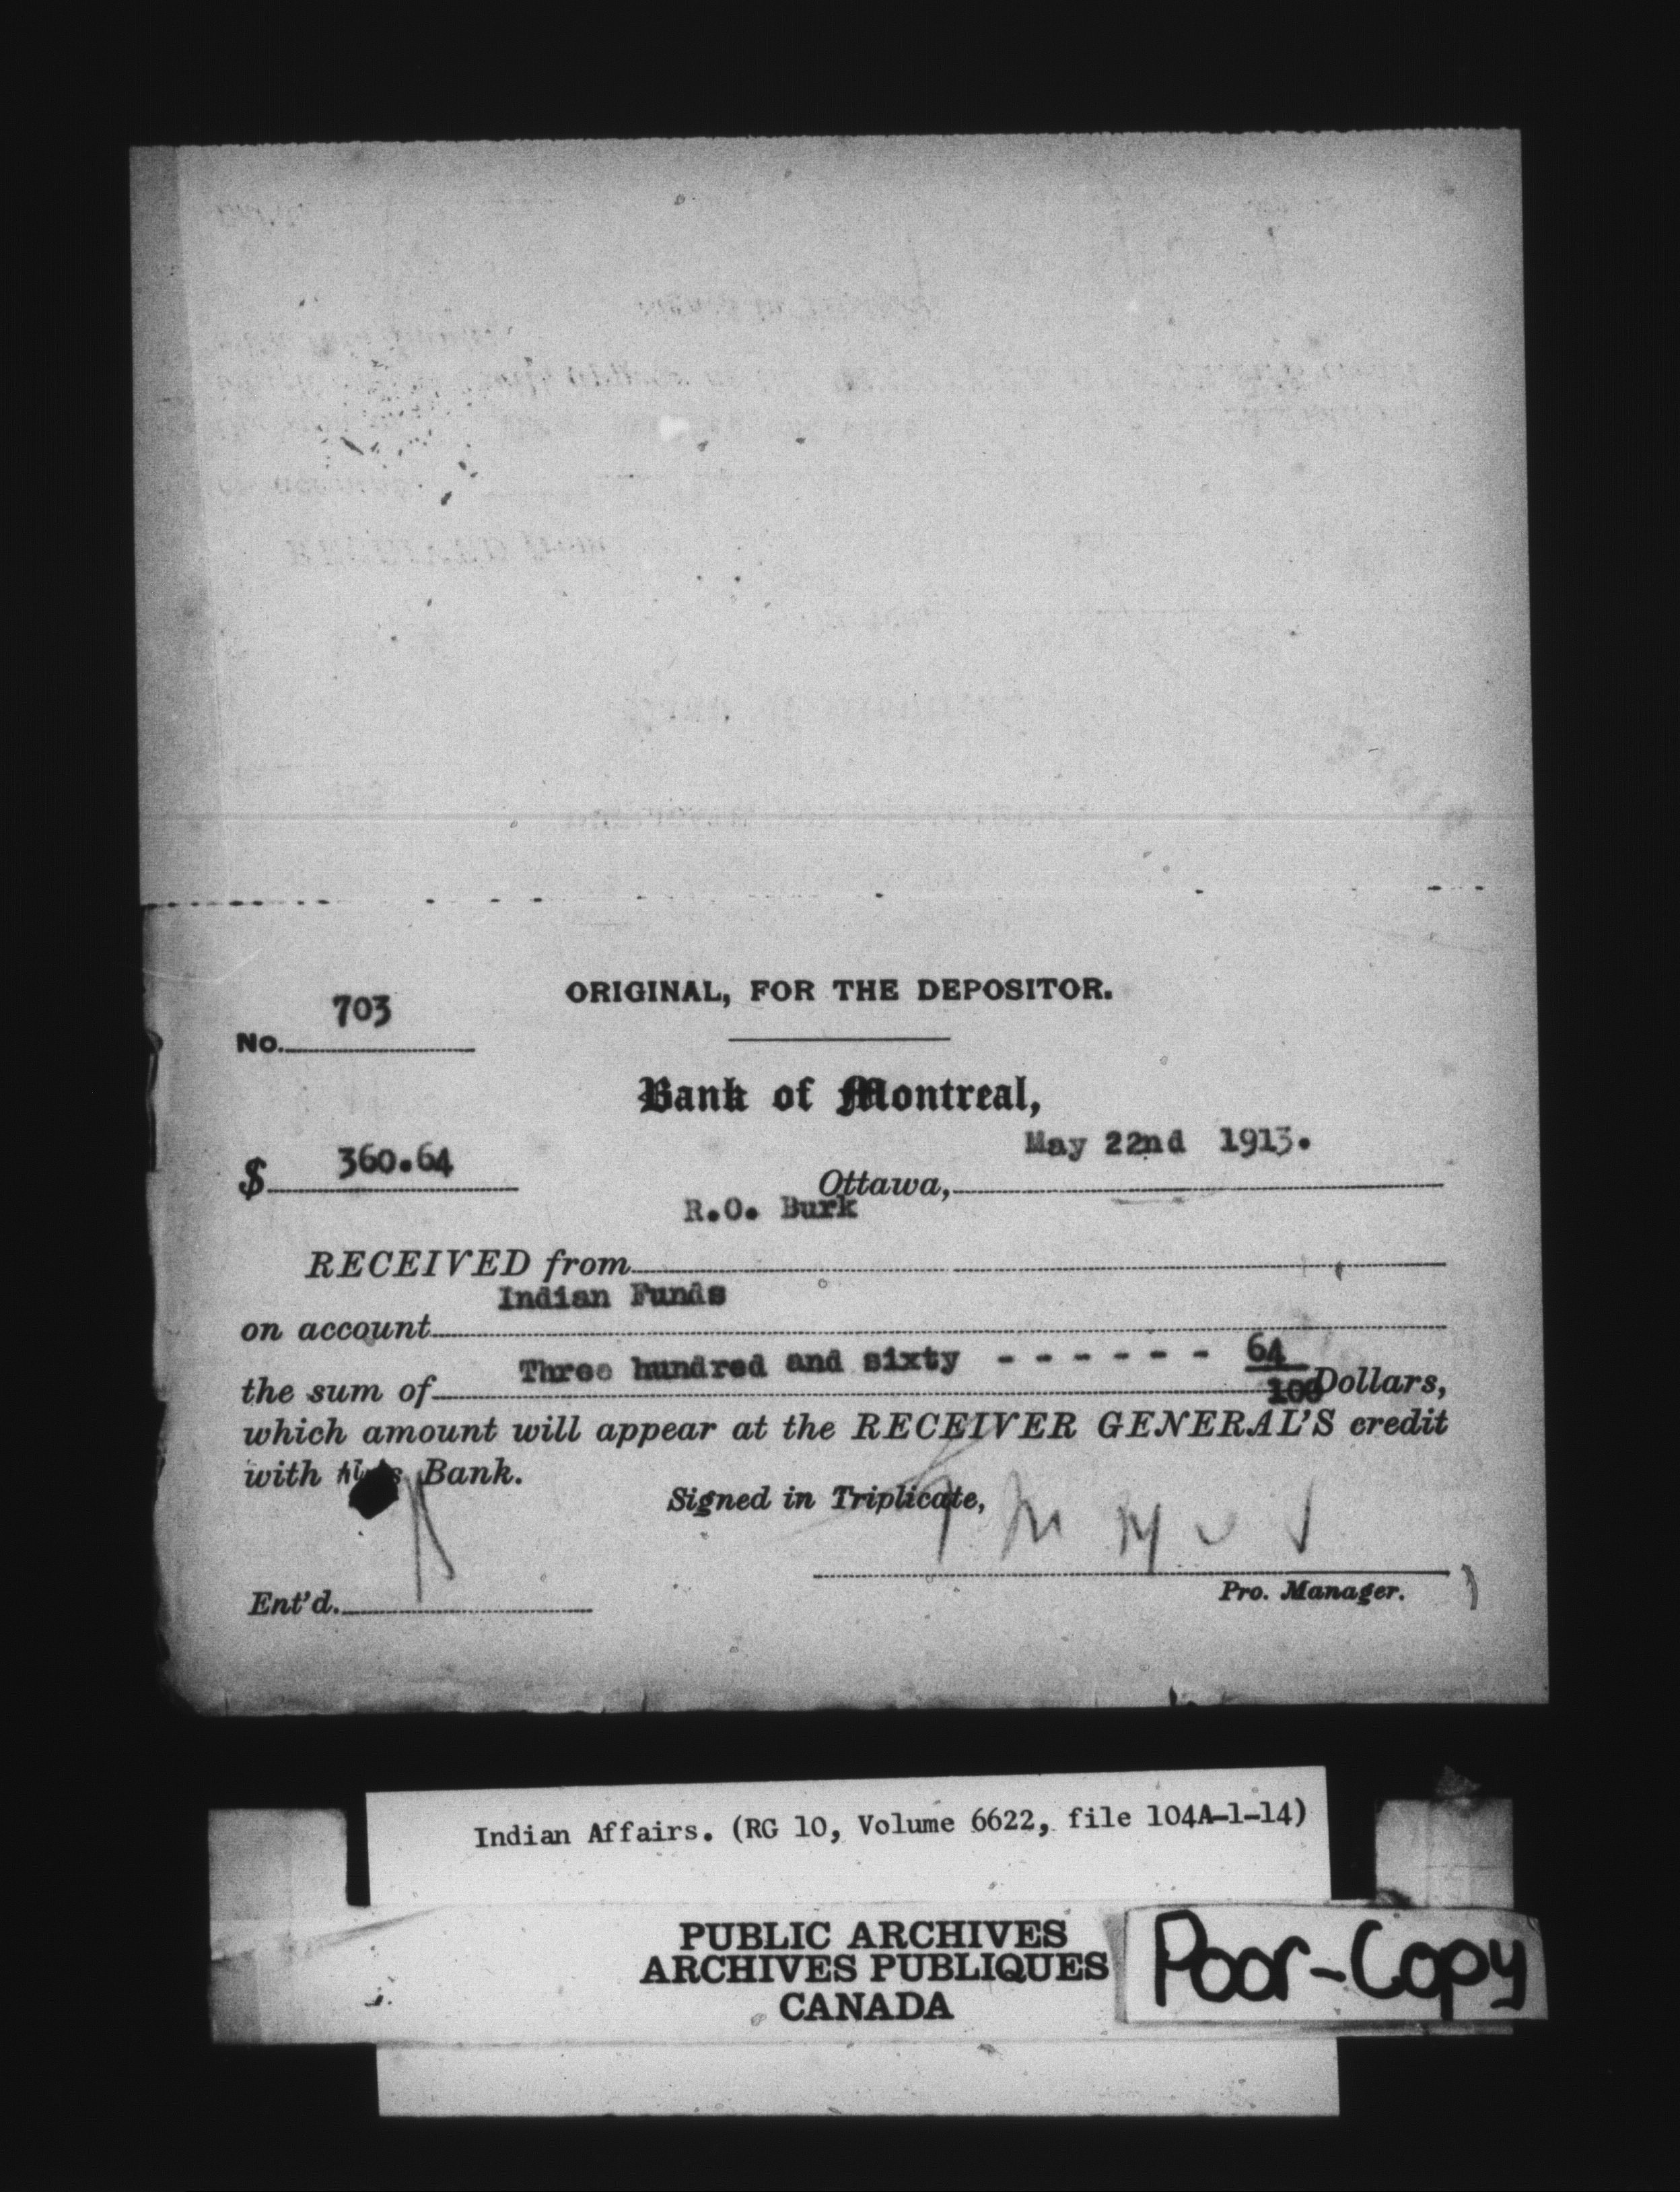 ORIGINAL, FOR THE DEPOSITOR.
703
No.
Bank of Montreal,
May 22nd 1913.
$ 360.64
Ottawa,
R.O. Burk
RECEIVED from
Indian Funds
on account
Three hundred and sixty - - - - - - 64/100
the sum of Dollars,
which amount will appear at the RECEIVER GENERAL'S credit
with this Bank.
Signed in Triplicate,
Pro. Manager.
Ent'd.
Indian Affairs. (RG 10, Volume 6622, file 104A-1-14)
PUBLIC ARCHIVES
ARCHIVES PUBLIQUES
CANADA
Poor-Copy